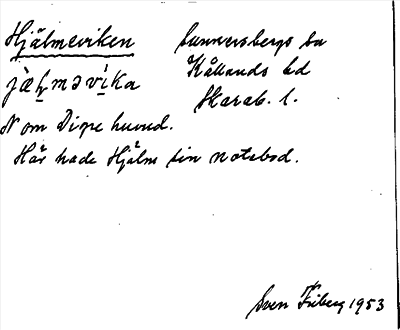 Hjälmeviken
Sunnersbergs sn
jæl̥məvi̍ka
Kållands hd
Skarab. l.
N om Dirpe huvud.
Här hade Hjälm sin notabod.
Sven Friberg 1953